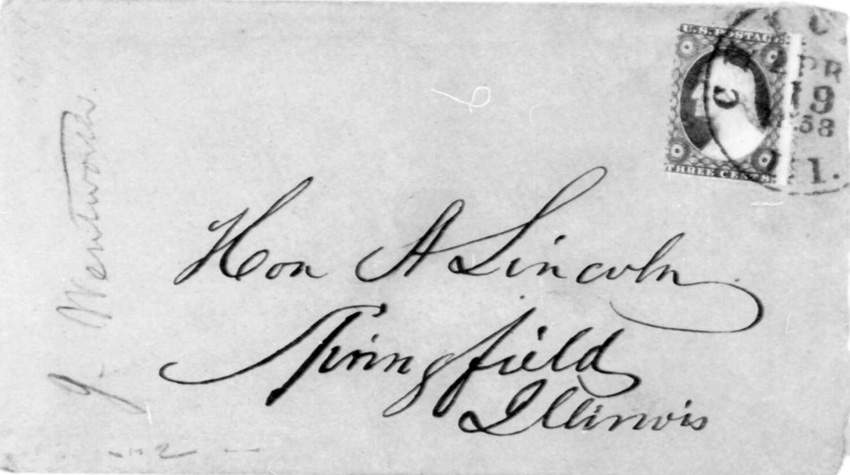 U.S. POSTAGE
THREE CENTS
APR
19
58
Hon A Lincoln
Springfield
Illinois
J. Wentworth.